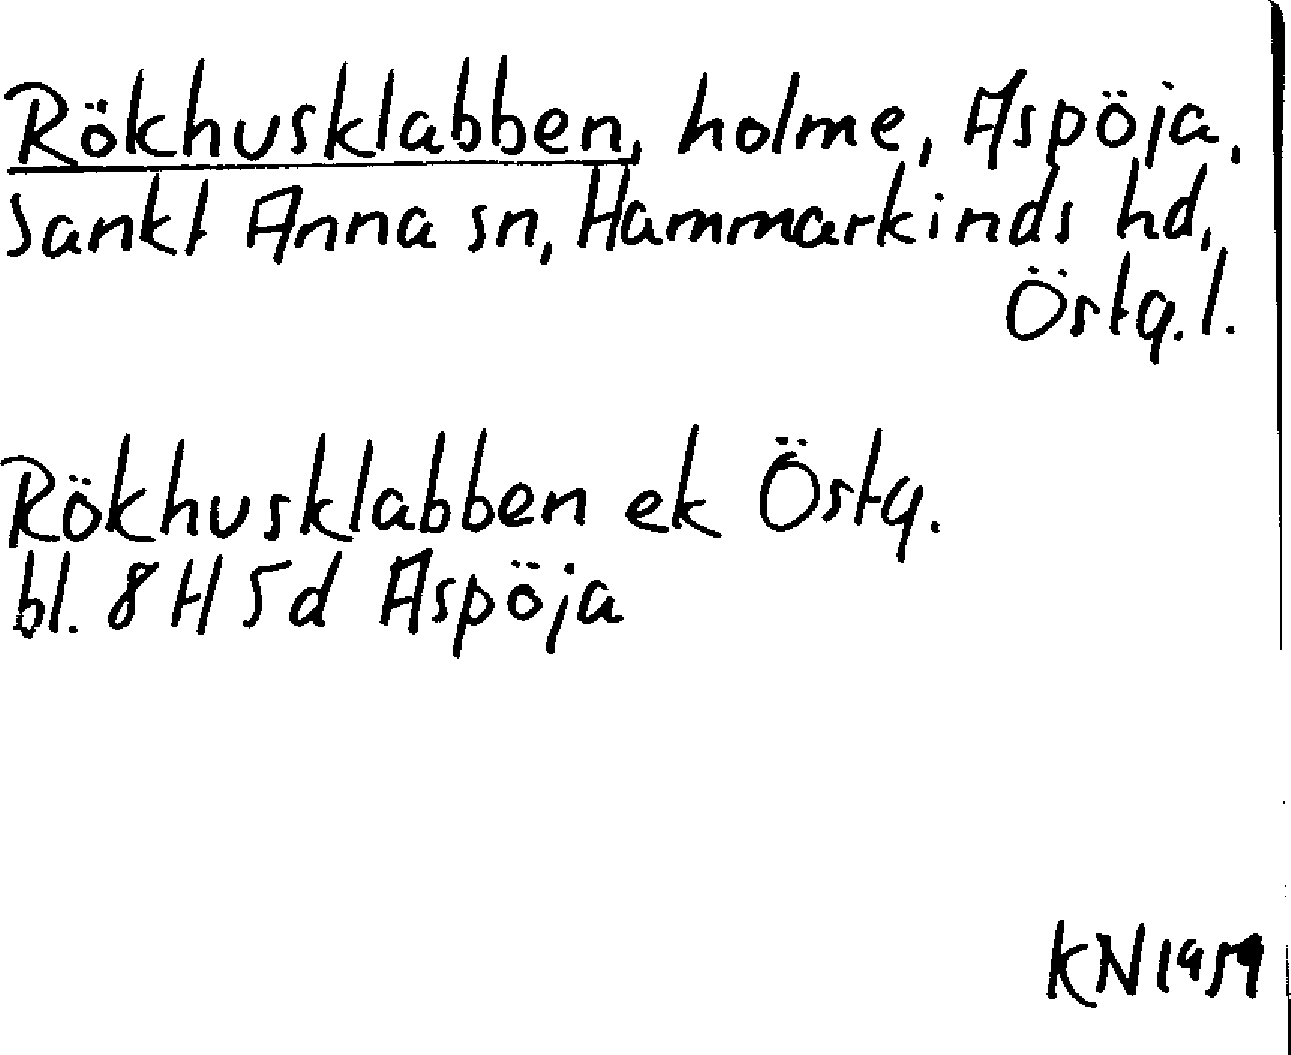 Rökhusklabben, holme, Aspöja,
Sankt Anna sn, Hammarkinds hd,
Östg. l.
Rökhusklabben ek Östg.
bl. 8 H 5 d Aspöja
KN 1959